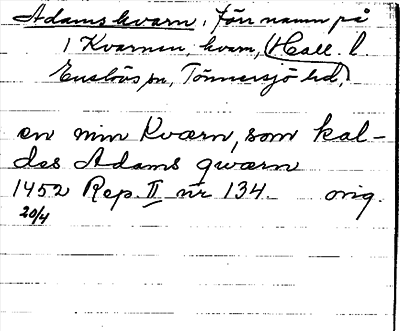 Adamskvarn, förr namn på
1 Kvarnen, kvarn, (Hall. l.
Enslövs sn, Tönnersjö hd.)
en min Kværn, som kal-
des Adams qwærn
1452 Rep. II nr 134. orig.
20/4